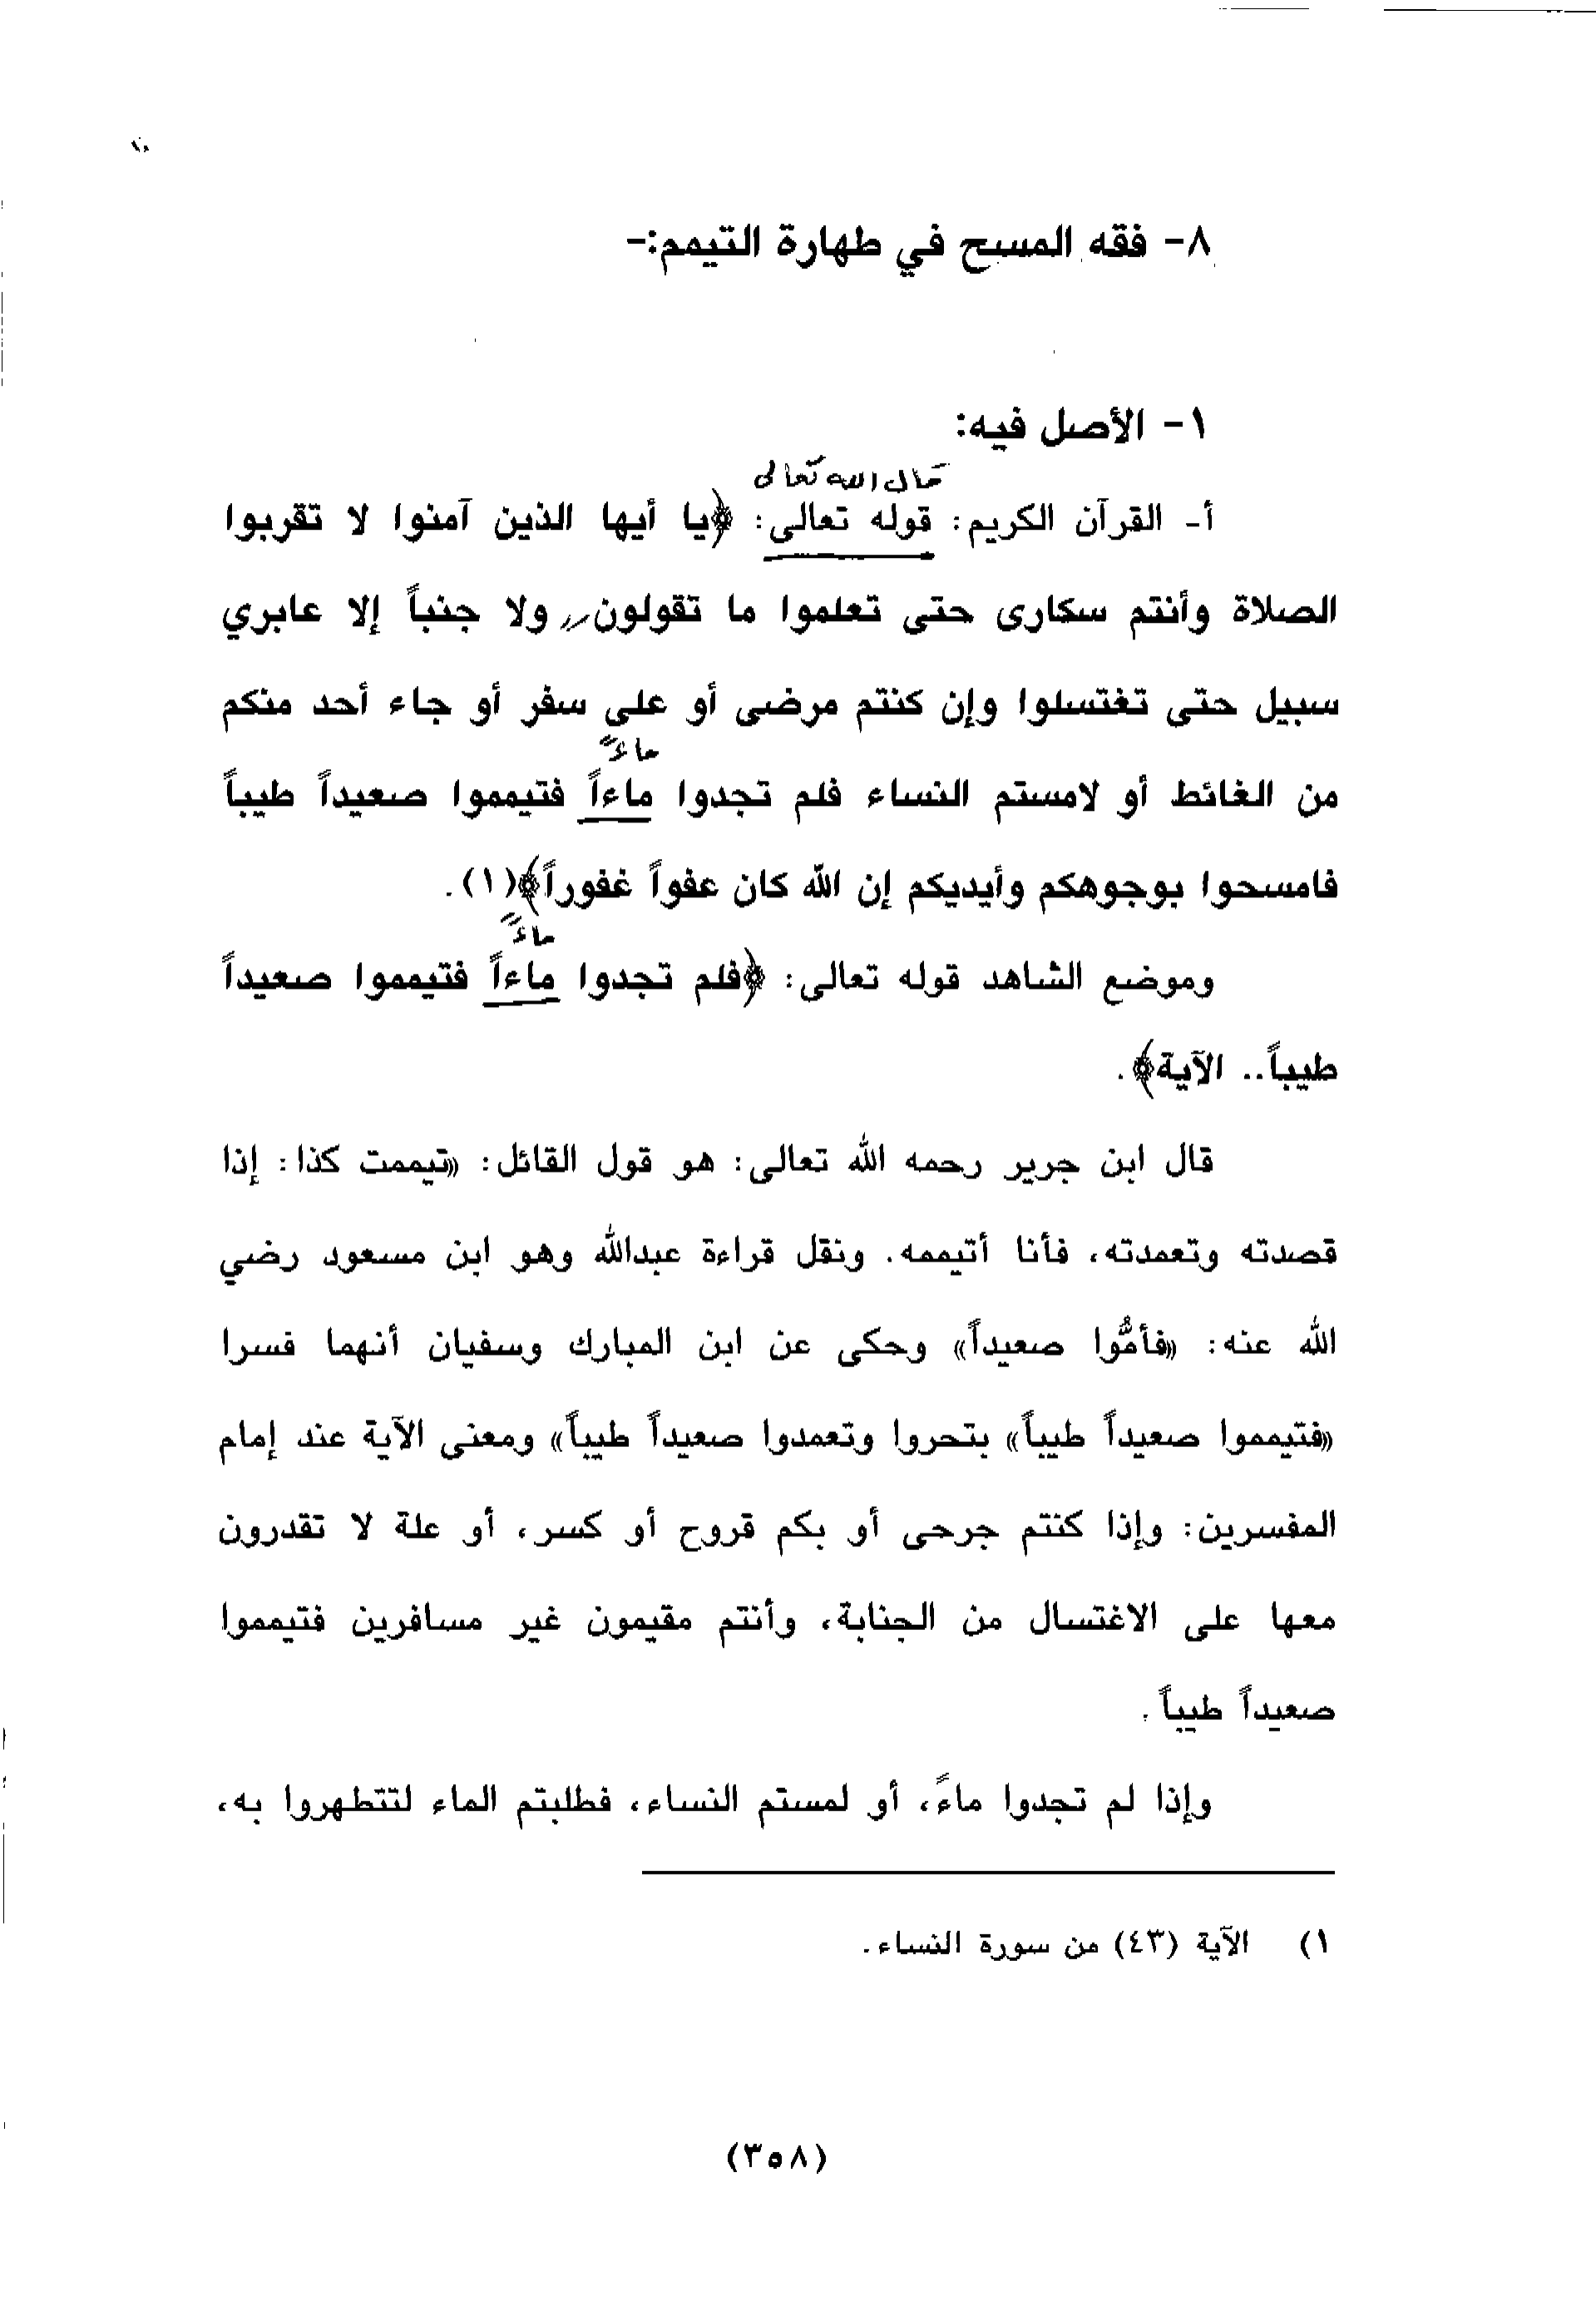 ٨- فقه المسح في طهارة التيمم:-
١- الأصل فيه:
قال الله تعالى
أ- القرآن الكريم: قوله تعالى: ﴿يا أيها الذين آمنوا لا تقربوا
الصلاة وأنتم سكارى حتى تعلموا ما تقولون ولا جنباً إلا عابري
سبيل حتى تغتسلوا وإن كنتم مرضى أو على سفر أو جاء أحد منكم
ماءً
من الغائط أو لامستم النساء فلم تجدوا ماءاً فتيمموا صعيداً طيباً
فامسحوا بوجوهكم وأيديكم إن الله كان عفواً غفوراً﴾(١).
ماءً
وموضع الشاهد قوله تعالى: ﴿فلم تجدوا ماءاً فتيمموا صعيداً
طيباً.. الآية﴾.
قال ابن جرير رحمه الله تعالى: هو قول القائل: «تيممت كذا: إذا
قصدته وتعمدته، فأنا أتيممه. ونقل قراءة عبدالله وهو ابن مسعود رضي
الله عنه: «فأمُّوا صعيداً» وحكى عن ابن المبارك وسفيان أنهما فسرا
«فتيمموا صعيداً طيباً» بتحروا وتعمدوا صعيداً طيباً» ومعنى الآية عند إمام
المفسرين: وإذا كنتم جرحى أو بكم قروح أو كسر، أو علة لا تقدرون
معها على الاغتسال من الجنابة، وأنتم مقيمون غير مسافرين فتيمموا
صعيداً طيباً.
وإذا لم تجدوا ماءً، أو لمستم النساء، فطلبتم الماء لتتطهروا به،
١) الآية (٤٣) من سورة النساء.
(٣٥٨)